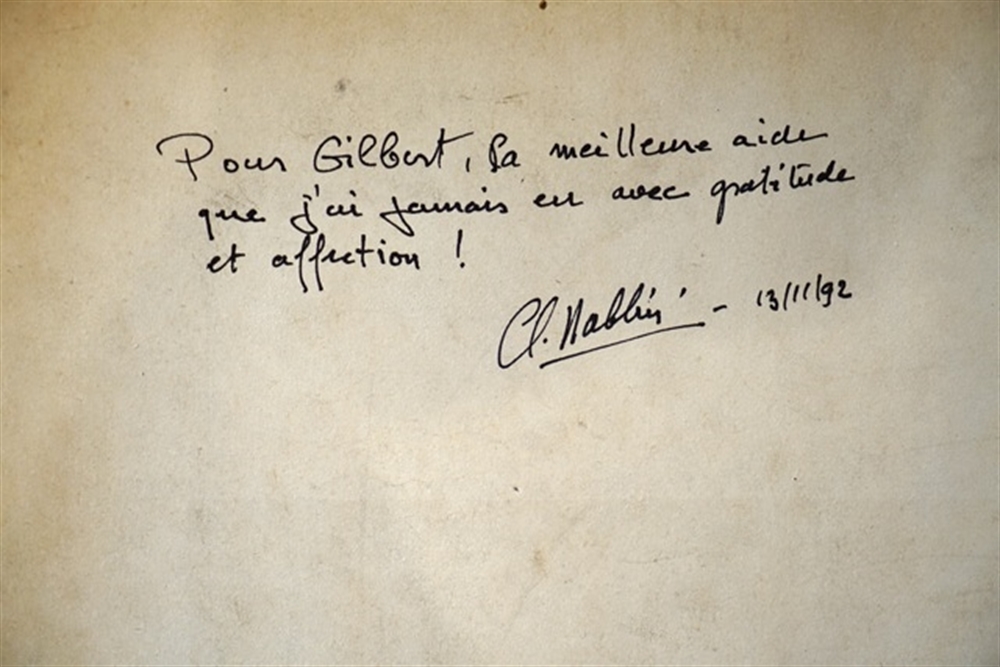 Pour Gilbert, la meilleure aide
que j'ai jamais eu avec gratitude
et affection !
Cl. - 13/11/92